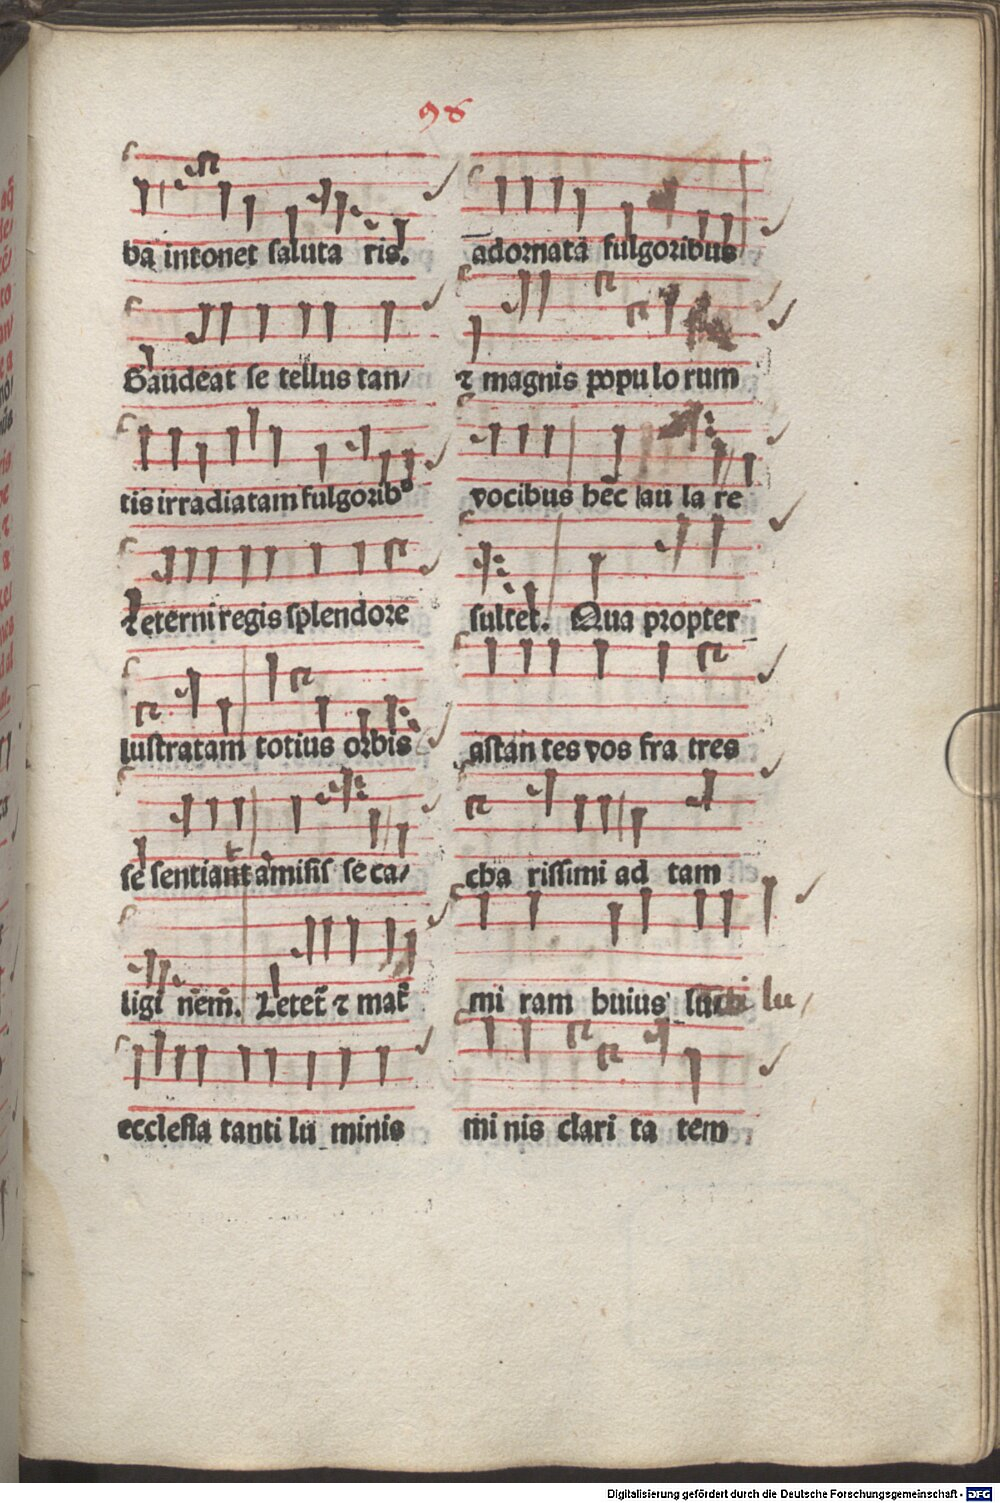 98
ba intonet saluta ris.
Gaudeat se tellus tan/
tis irradiatam fulgorib⁹
⁊ eterni regis splendore
lustratam totius orbis
se sentiant amisis se ca/
ligi nem̄. Letet̄ ⁊ mat̄
ecclesia tanti lu minis
adornata fulgoribus
⁊ magnis populo rum
vocibus hec au la re
sultet. Qua propter
astan tes vos fra tres
cha rissimi ad tam
mi ram huius lu/
mi nis clari ta tem
Digitalisierung gefördert durch die Deutsche Forschungsgemeinschaft - DFG